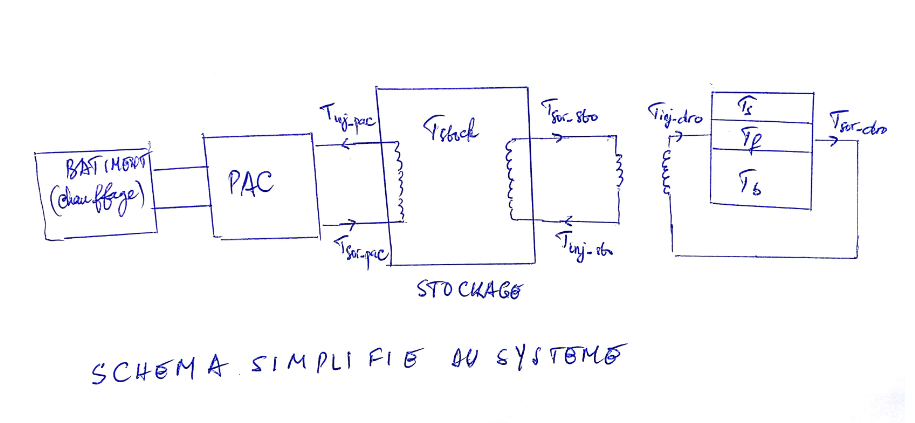 BATIMENT
(chauffage)
PAC
Tinj-pac
Tsor-pac
Tstock
STOCKAGE
Tsor-sto
Tinj-sto
Tinj-dro
Ts
Tf
Tb
Tsor-dro
SCHEMA SIMPLIFIE DU SYSTEME